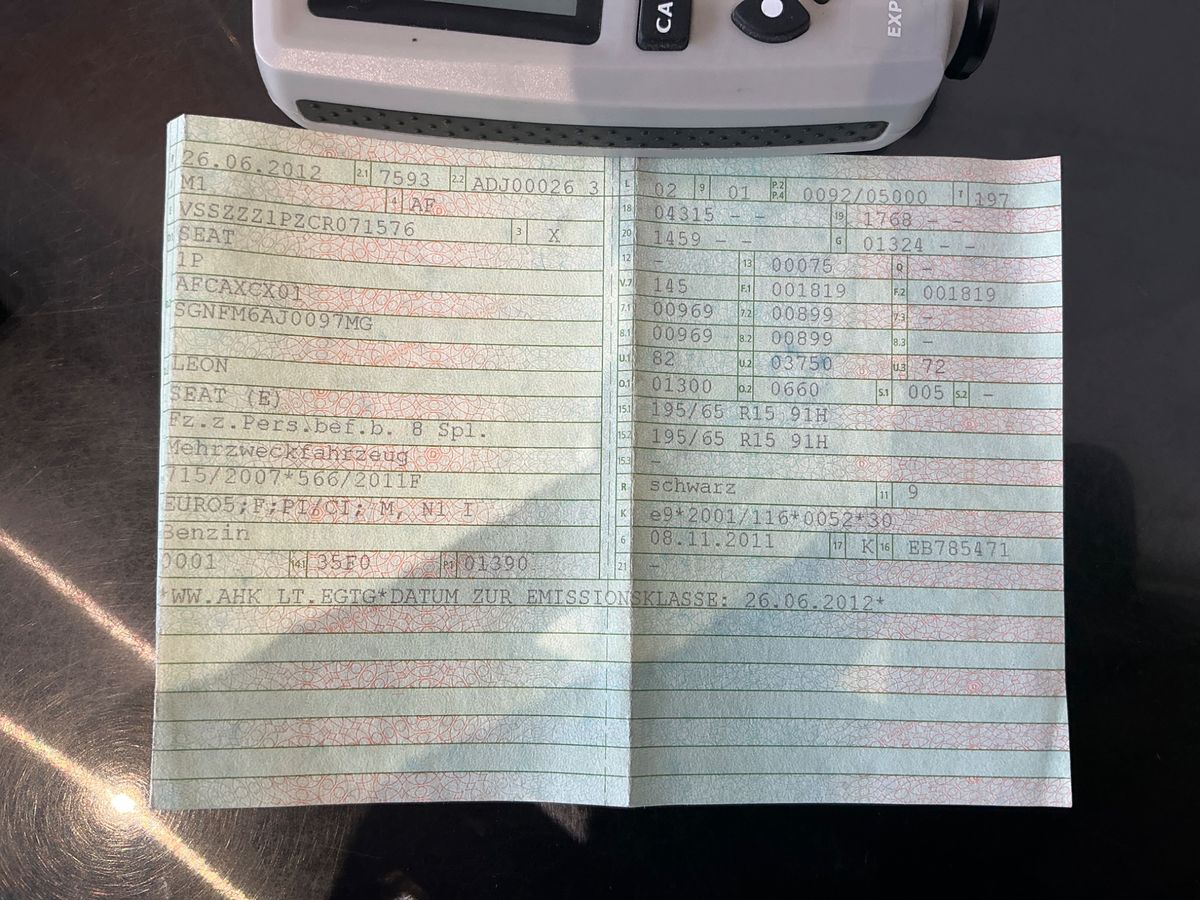 CA
EXP
26.06.2012 2.1 7593 2.2 ADJ00026 3
M1 4 AF
VSSZZZ1PZCR071576 3 X
SEAT
1P
AFCAXCX01
SGNFM6AJ0097MG
LEON
SEAT (E)
Fz.z.Pers.bef.b. 8 Spl.
Mehrzweckfahrzeug
715/2007*566/2011F
EURO5;F;PI/CI; M, N1 I
Benzin
0001 14.1 35F0 P.1 01390
L 02 9 01 P.2 P.4 0092/05000 T 197
18 04315 - - 19 1768 - -
20 1459 - - G 01324 - -
12 - 13 00075 Q -
V.7 145 F.1 001819 F.2 001819
7.1 00969 7.2 00899 7.3 -
8.1 00969 8.2 00899 8.3 -
U.1 82 U.2 03750 U.3 72
O.1 01300 O.2 0660 S.1 005 S.2 -
15.1 195/65 R15 91H
15.2 195/65 R15 91H
15.3 -
R schwarz 11 9
K e9*2001/116*0052*30
6 08.11.2011 17 K 16 EB785471
21 -
*WW.AHK LT.EGTG*DATUM ZUR EMISSIONSKLASSE: 26.06.2012*